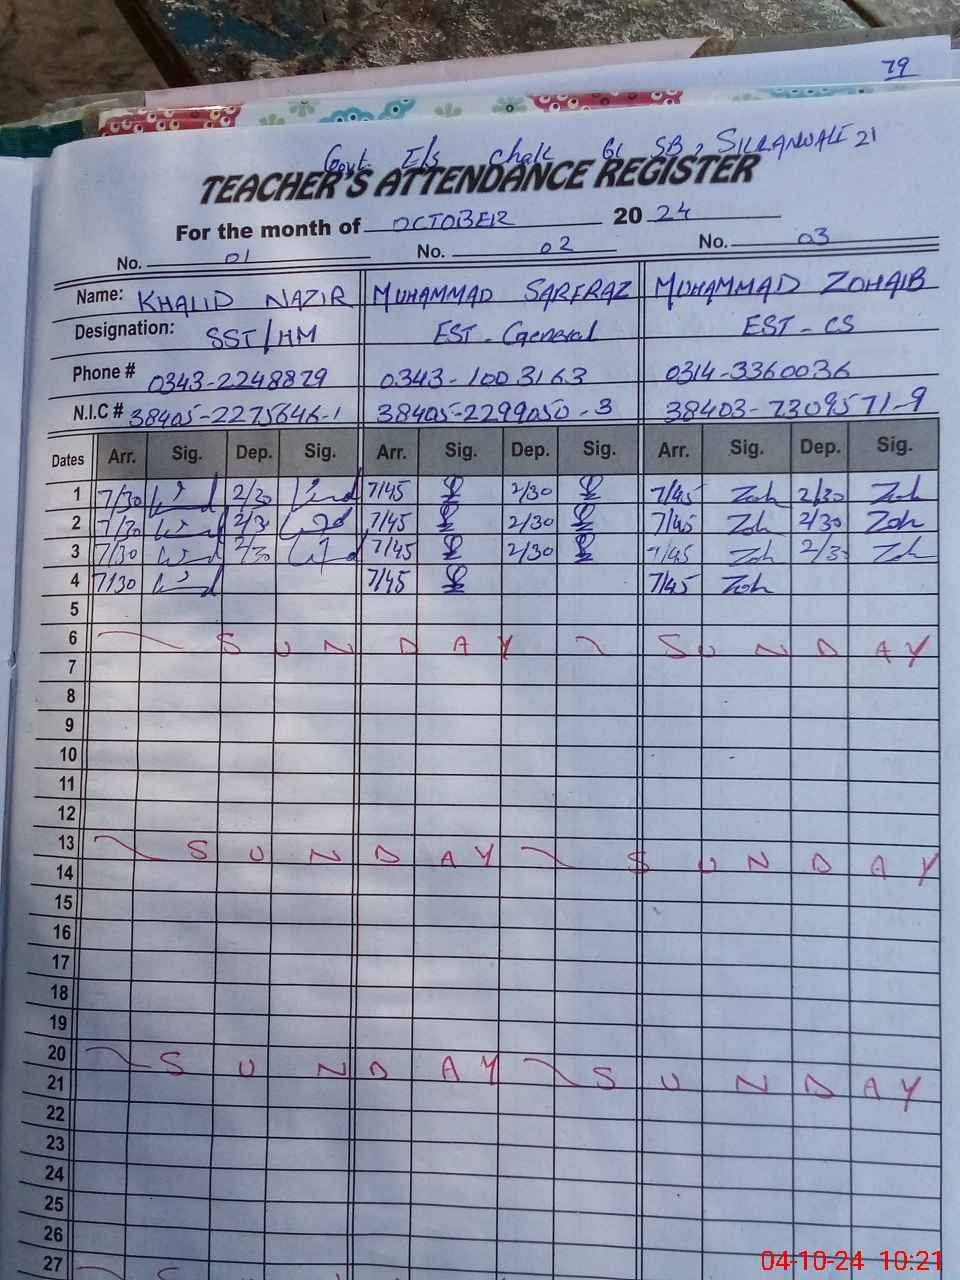 79
Govt. E/s Chak 61 SB, SILLANWALI 21
TEACHER'S ATTENDANCE REGISTER
For the month of OCTOBER 2024
No. 01 No. 02 No. 03
Name: KHALID NAZIR MUHAMMAD SARFRAZ MUHAMMAD ZOHAIB
Designation: SST/HM EST - General EST - CS
Phone # 0343-2248829 0343-1003163 0314-3360036
N.I.C # 38405-2275646-1 38405-2299050-3 38403-7309571-9
Dates Arr. Sig. Dep. Sig. Arr. Sig. Dep. Sig. Arr. Sig. Dep. Sig.
1 7/30 2/30 7/45 2/30 7/45 Zoh 2/30 Zoh
2 7/30 2/30 7/45 2/30 7/45 Zoh 2/30 Zoh
3 7/30 2/30 7/45 2/30 7/45 Zoh 2/30 Zoh
4 7/30 7/45 7/45 Zoh
5
6 SUNDAY SUNDAY
7
8
9
10
11
12
13 SUNDAY SUNDAY
14
15
16
17
18
19
20 SUNDAY SUNDAY
21
22
23
24
25
26
27
04-10-24 10:21